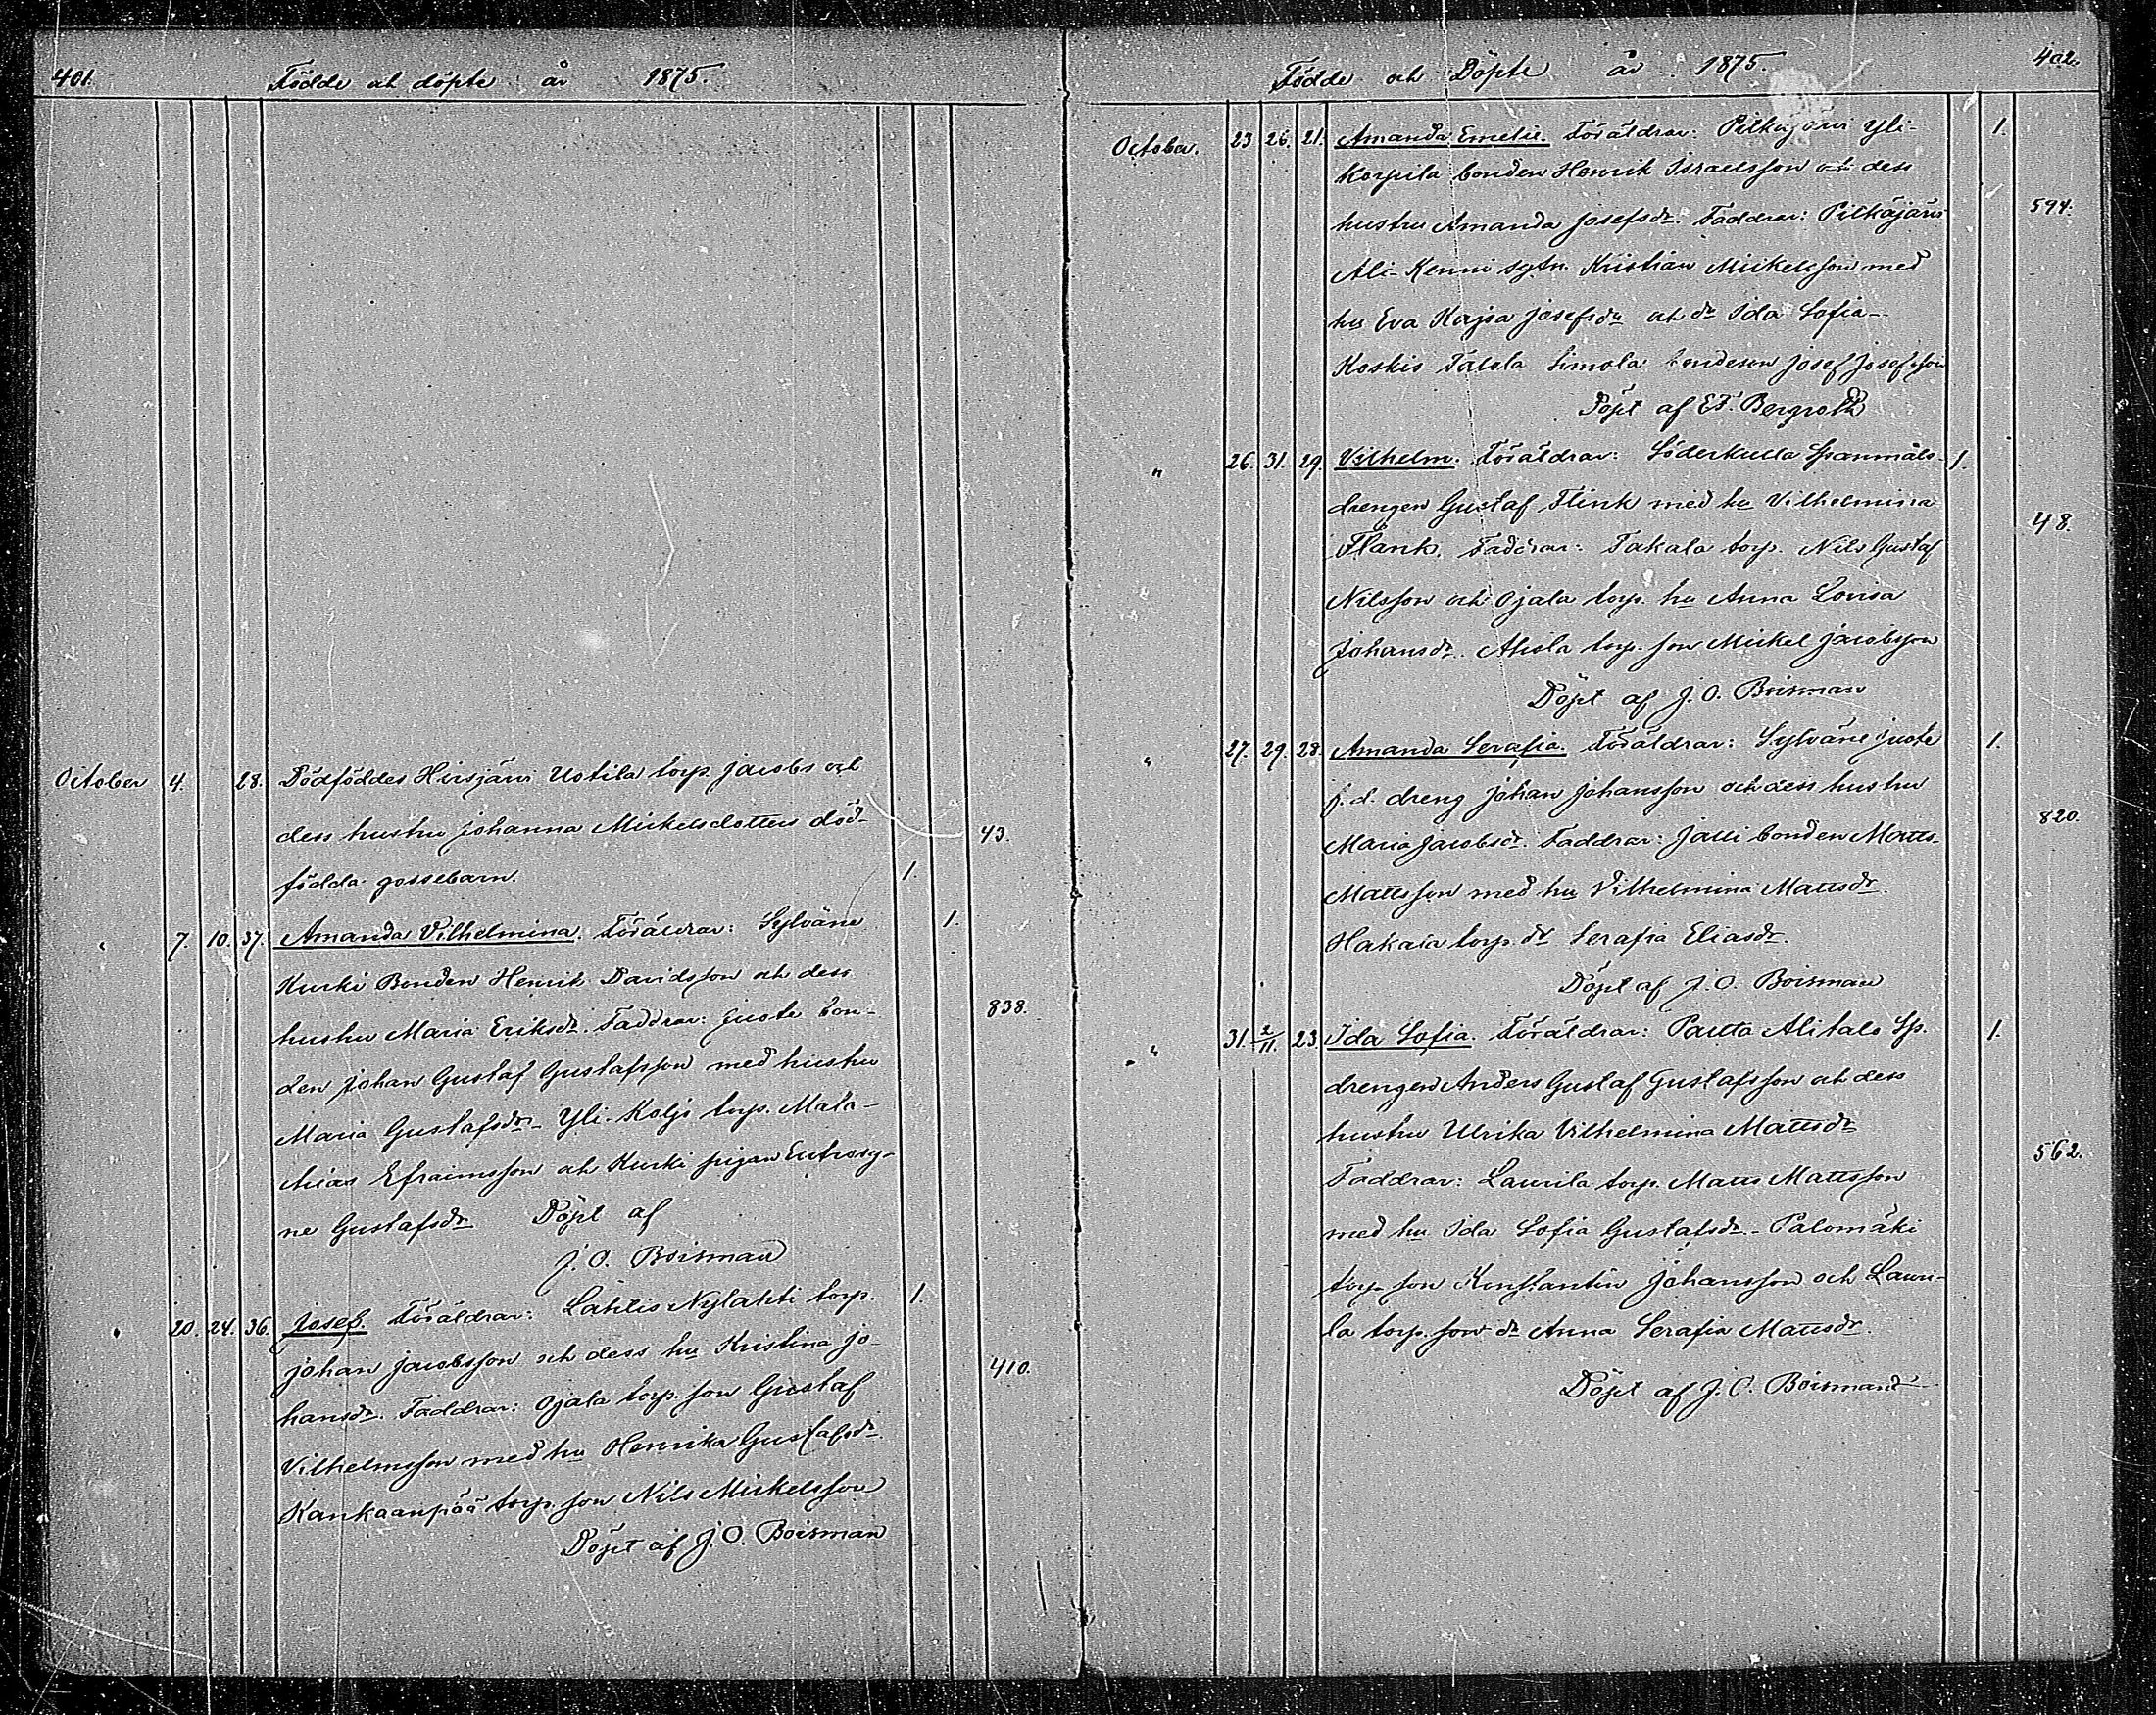 401. Födde och döpte år 1875.
October 4. 28. Dödföddes Hirsjärvi Uotila torp. Jacobs och
dess hustru Johanna Mickelsdotters död- 43.
födda gossebarn. 1.
" 7. 10. 37. Amanda Vilhelmina. Föräldrar: Sylväne 1.
Kurki Bonden Henrik Davidsson och dess
hustru Maria Eriksdr. Faddrar: Juote bon- 838.
den Johan Gustaf Gustafsson med hustru
Maria Gustafsdr. Yli-Koljo torp. Mata-
thias Efraimsson och Kurki pigan Eufrosy-
ne Gustafsdr. Döpt af
J. O. Boisman
" 20. 24. 36. Josef. Föräldrar: Lahtis Nylahti torp. 1.
Johan Jacobsson och dess hu Kristina Jo- 410.
hansdr. Faddrar: Ojala torp. son Gustaf
Vilhelmsson med hu Henrika Gustafsdr.
Kankaanpää torp. son Nils Mickelsson
Döpt af J. O. Boisman
Födde och Döpte år 1875. 402.
October. 23 26. 21. Amanda Emelie. Föräldrar: Pitkäjärvi Yli- 1.
Korpila bonden Henrik Israelsson och dess
hustru Amanda Josefsdr. Faddrar: Pitkäjärvi 594.
Ali-Kenni sytn. Kristian Mickelsson med
hu Eva Kajsa Josefsdr och dr Ida Sofia-
Koskis Talola Simola bondeson Josef Josefsson
Döpt af E. F. Bergroth
" 26. 31. 29. Vilhelm. Föräldrar: Söderkulla Spanmåls- 1.
drengen Gustaf Flink med hu Vilhelmina 48.
Flank, Faddrar: Takala torp. Nils Gustaf
Nilsson och Ojala torp. hu Anna Lovisa
Johansdr. Alisla torp. son Mickel Jacobsson
Döpt af J. O. Boisman
" 27. 29. 28. Amanda Serafia. Föräldrar: Sylväne Juote 1.
j. d. dreng Johan Johansson och dess hustru
Maria Jacobsdr. Faddrar: Jalli bonden Matts 820.
Mattsson med hu Vilhelmina Mattsdr.
Hakala torp. dr Serafia Eliasdr.
Döpt af J. O. Boisman
" 31. 2/11. 23. Ida Sofia. Föräldrar: Pautta Alitalo Sp. 1.
drengen Anders Gustaf Gustafsson och dess
hustru Ulrika Vilhelmina Mattsdr 562.
Faddrar: Laurila torp. Matts Mattsson
med hu Ida Sofia Gustafsdr. - Palomäki
torp. son Konstantin Johansson och Lauri-
la torp. son dr Anna Serafia Mattsdr.
Döpt af J. O. Boisman